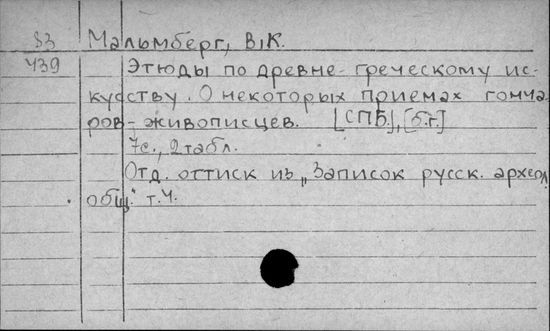 53 Мальмберг, В.К.
439 Этюды по древне-греческому ис-
кусству. О некоторых приемах гонча-
ров-живописцев. [СПБ.], [б.г.]
7с., 2 табл.
Отд. оттиск из "Записок русск. археол.
общ." т.4.